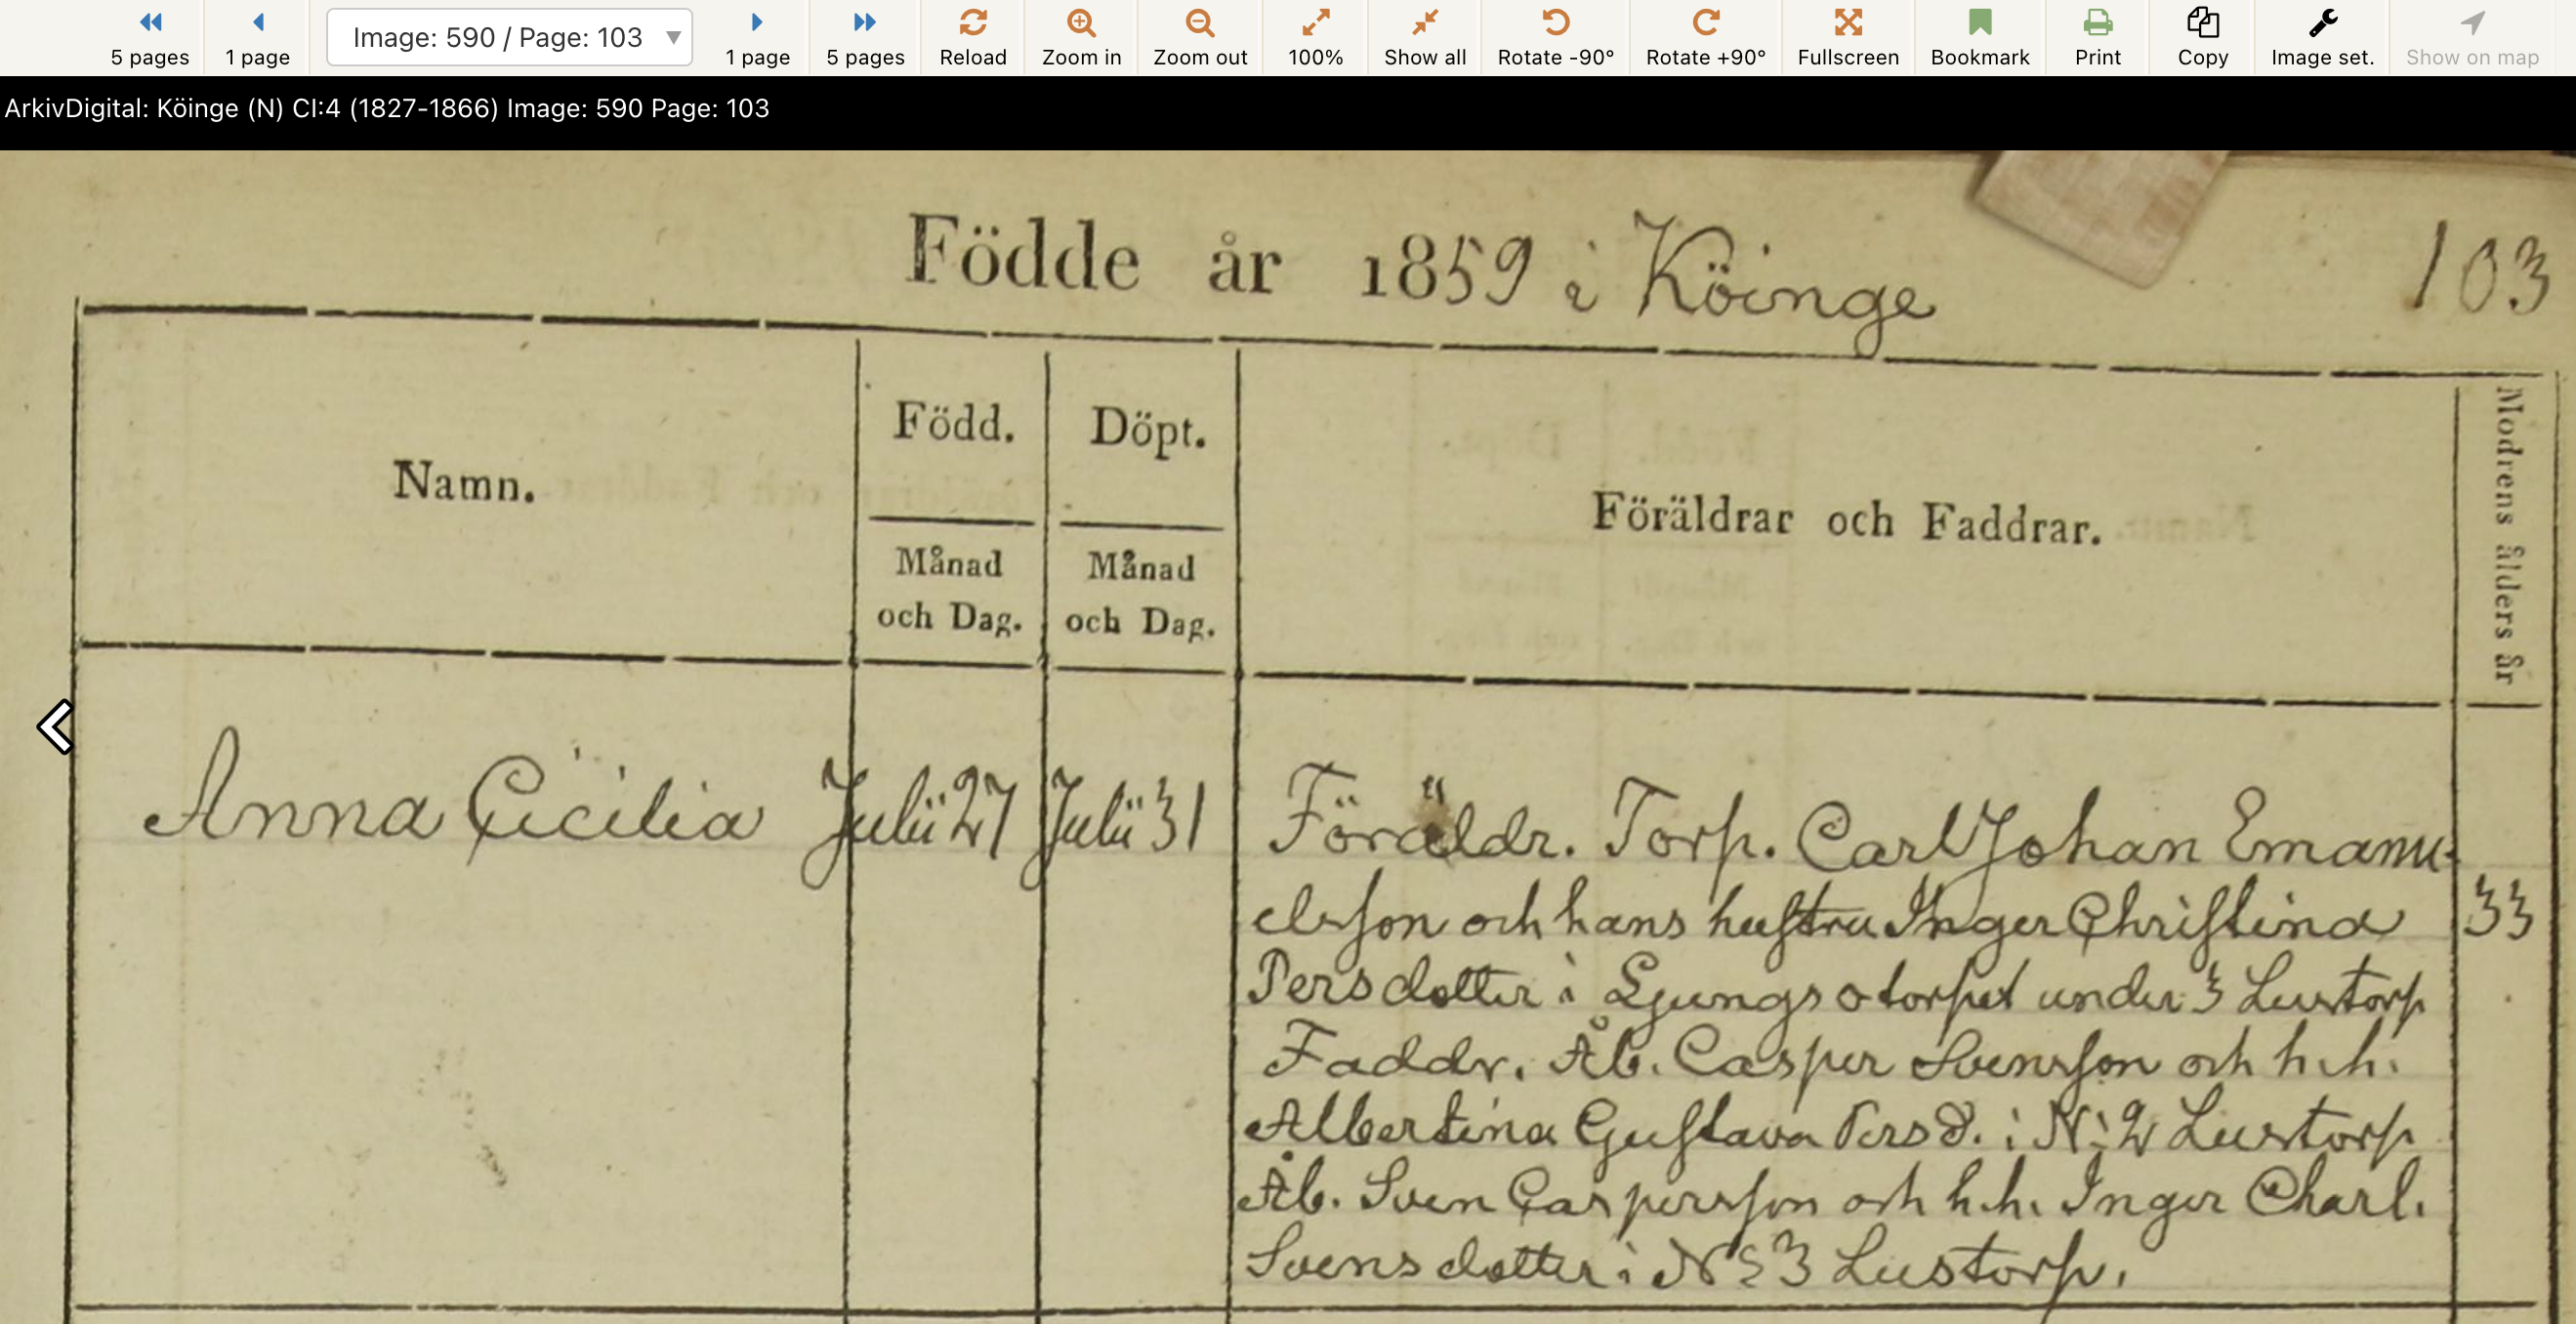 5 pages 1 page Image: 590 / Page: 103 1 page 5 pages Reload Zoom in Zoom out 100% Show all Rotate -90° Rotate +90° Fullscreen Bookmark Print Copy Image set. Show on map
ArkivDigital: Köinge (N) CI:4 (1827-1866) Image: 590 Page: 103
Födde år 1859 i Köinge
103
Namn.
Född.
Månad
och Dag.
Döpt.
Månad
och Dag.
Föräldrar och Faddrar.
Modrens ålders år
Anna Cicilia
Julii 27
Julii 31
Föräldr. Torp. Carl Johan Emanu-
elsson och hans hustru Inger Christina
33
Persdotter i Ljungstorpet under 3 Lustorp
Faddr. Åb. Casper Svensson och h.h.
Albertina Gustava Persd. i N: 2 Lustorp
Åb. Sven Caspersson och h.h. Inger Charl.
Svensdotter i No 3 Lustorp.